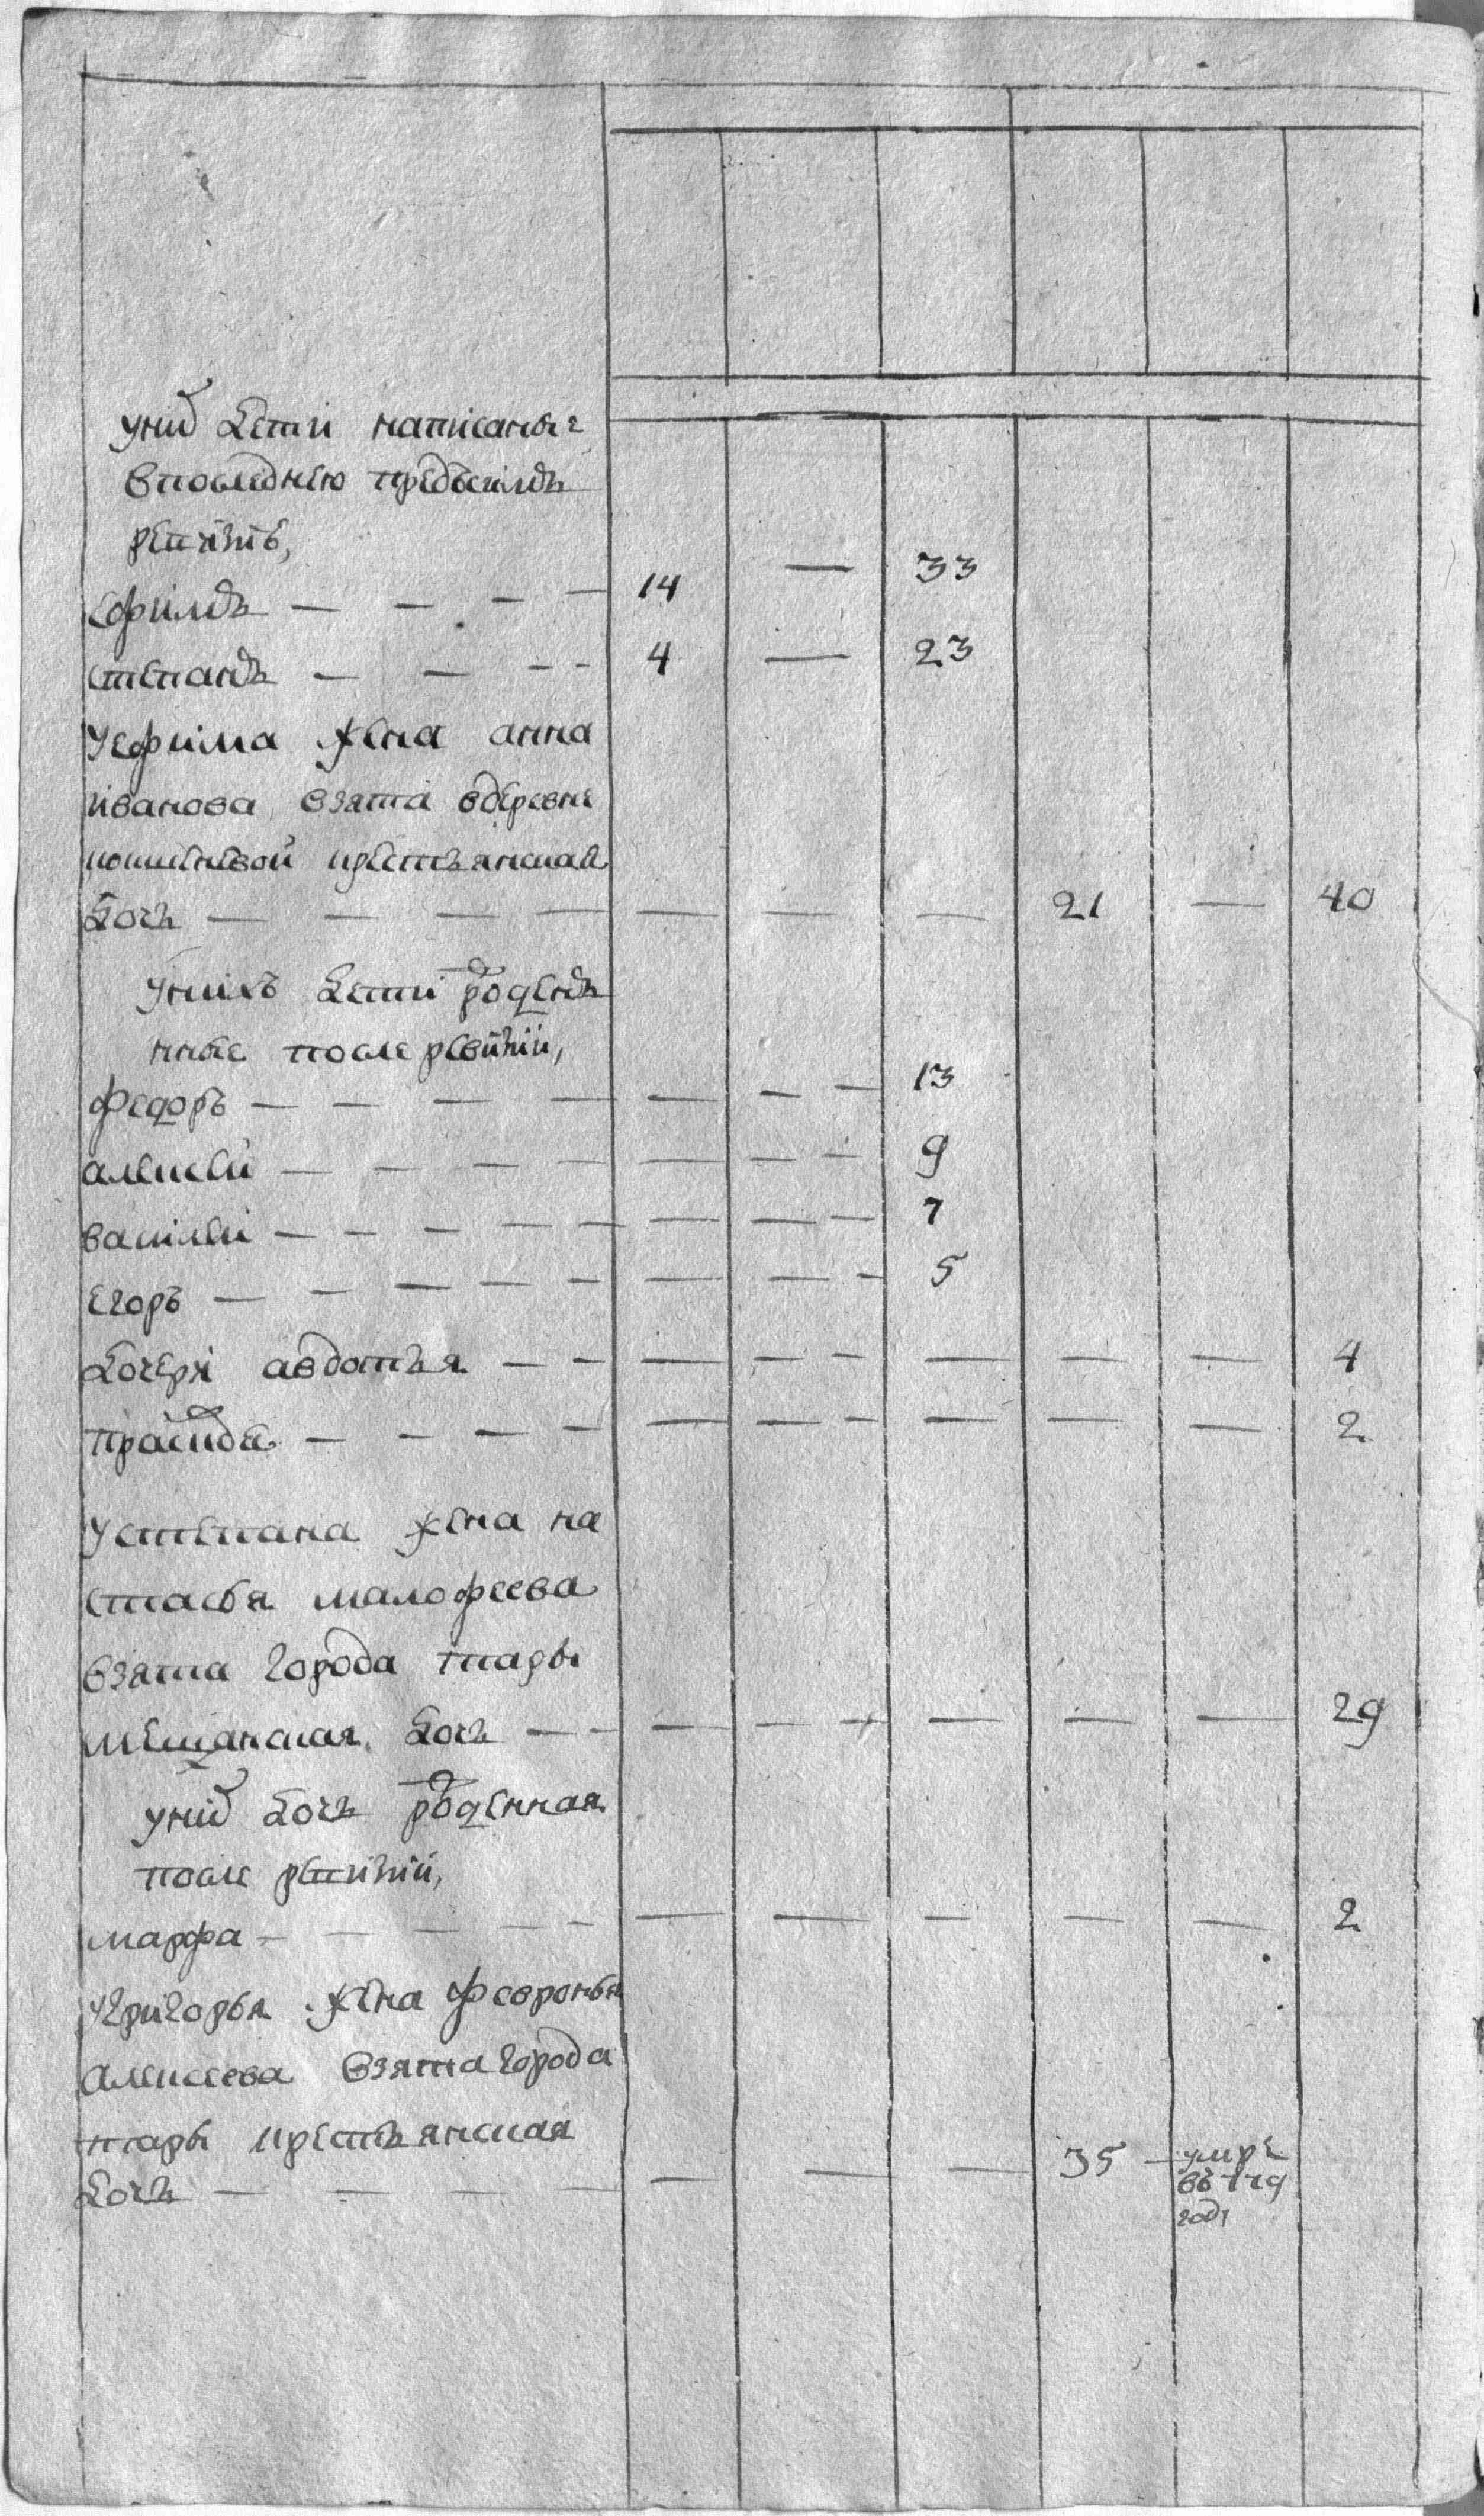 у них дети написаные
в последнею пред сим
ревизiю,
ефимъ — — — — 14 — 33
степанъ — — — — 4 — 23
у ефима жена анна
иванова взята в деревне
кошкулевой крестьянская
дочь — — — — — — — 21 — 40
у нихъ дети рожден
нные после ревизiи,
федоръ — — — — — — — 13
алексей — — — — — — — 9
василей — — — — — — — — 7
егоръ — — — — — — — — 5
дочери авдотья — — — — — — — — 4
праскодья — — — — — — — — — — 2
у степана жена на
стасья малофеева
взята города тары
мещанская дочь — — — — — — — — 29
у них дочь рожденная
после ревизiи,
марфа — — — — — — — — — 2
у григорья жена февронья
алексеева взята города
тары крестьянская
дочь — — — — — — — 35 — умре
въ 179
году